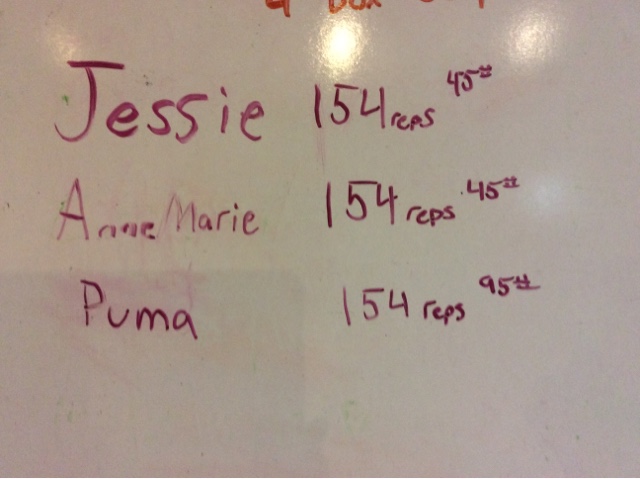 4 box
Jessie 154 reps 45#
AnneMarie 154 reps 45#
Puma 154 reps 95#